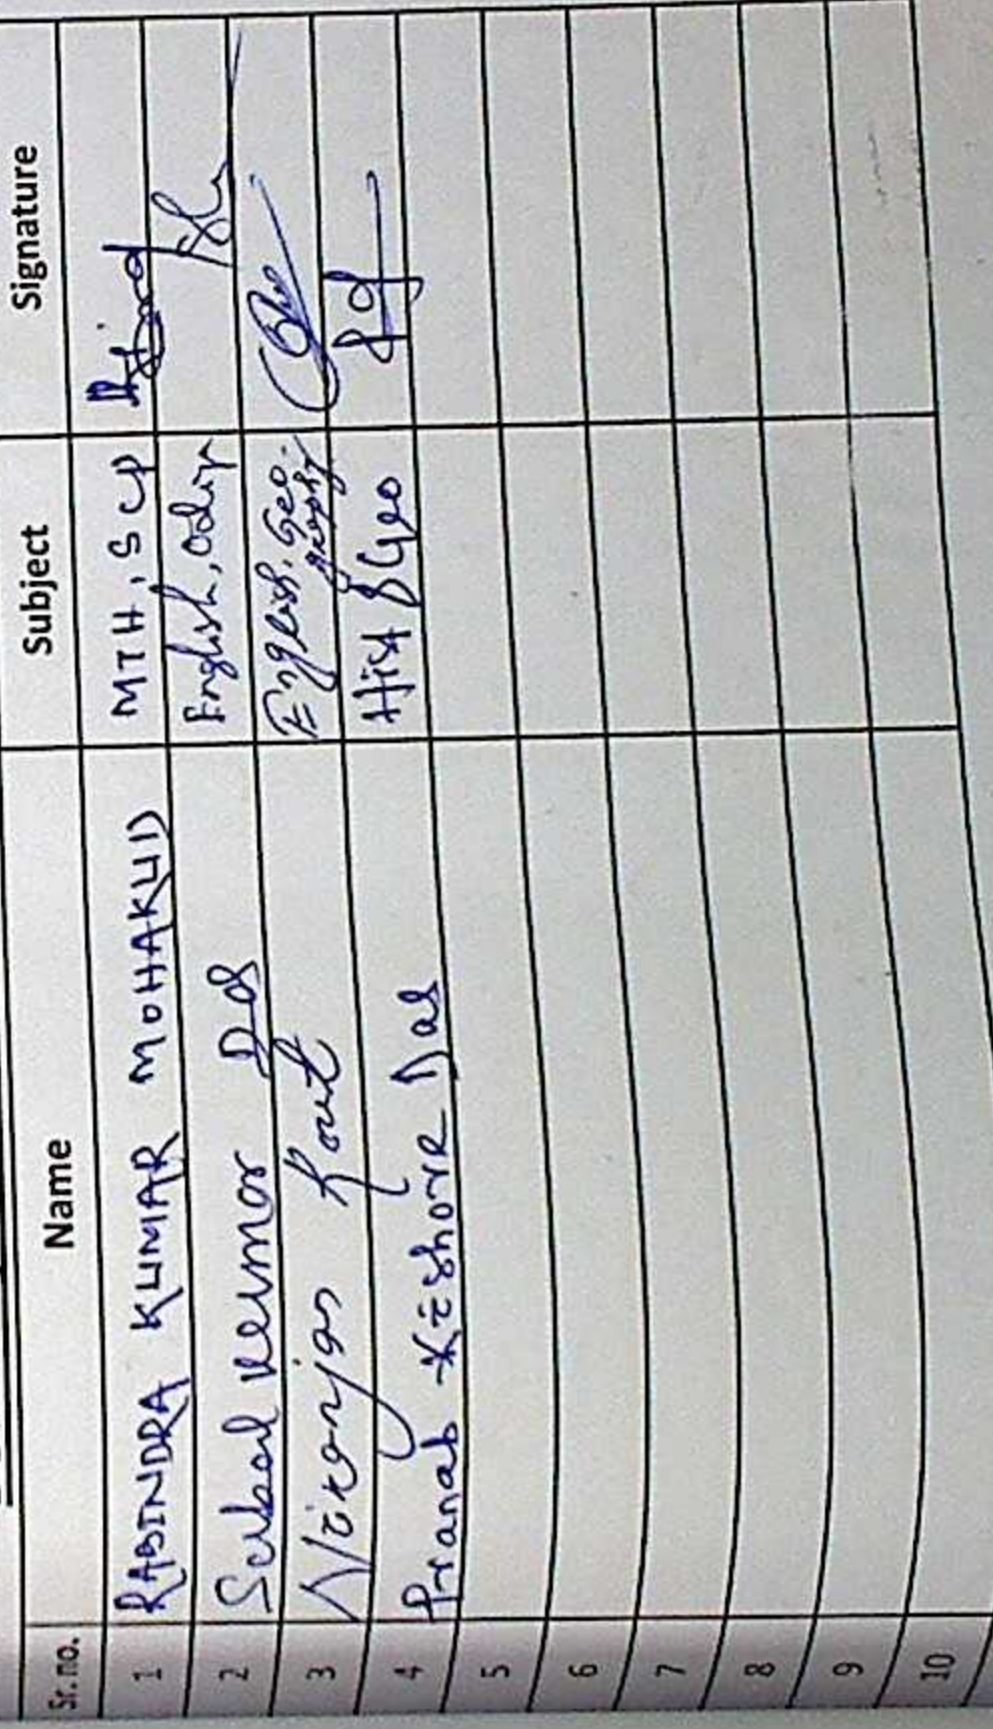 Sr. no. Name Subject Signature
1 RABINDRA KUMAR MOHAKUD MTH, SCP
2 Kumar Das English, Odia
3 Niranjan Rout English, Geo-
graphy
4 Pranab Kishore Das Hist & Geo
5
6
7
8
9
10